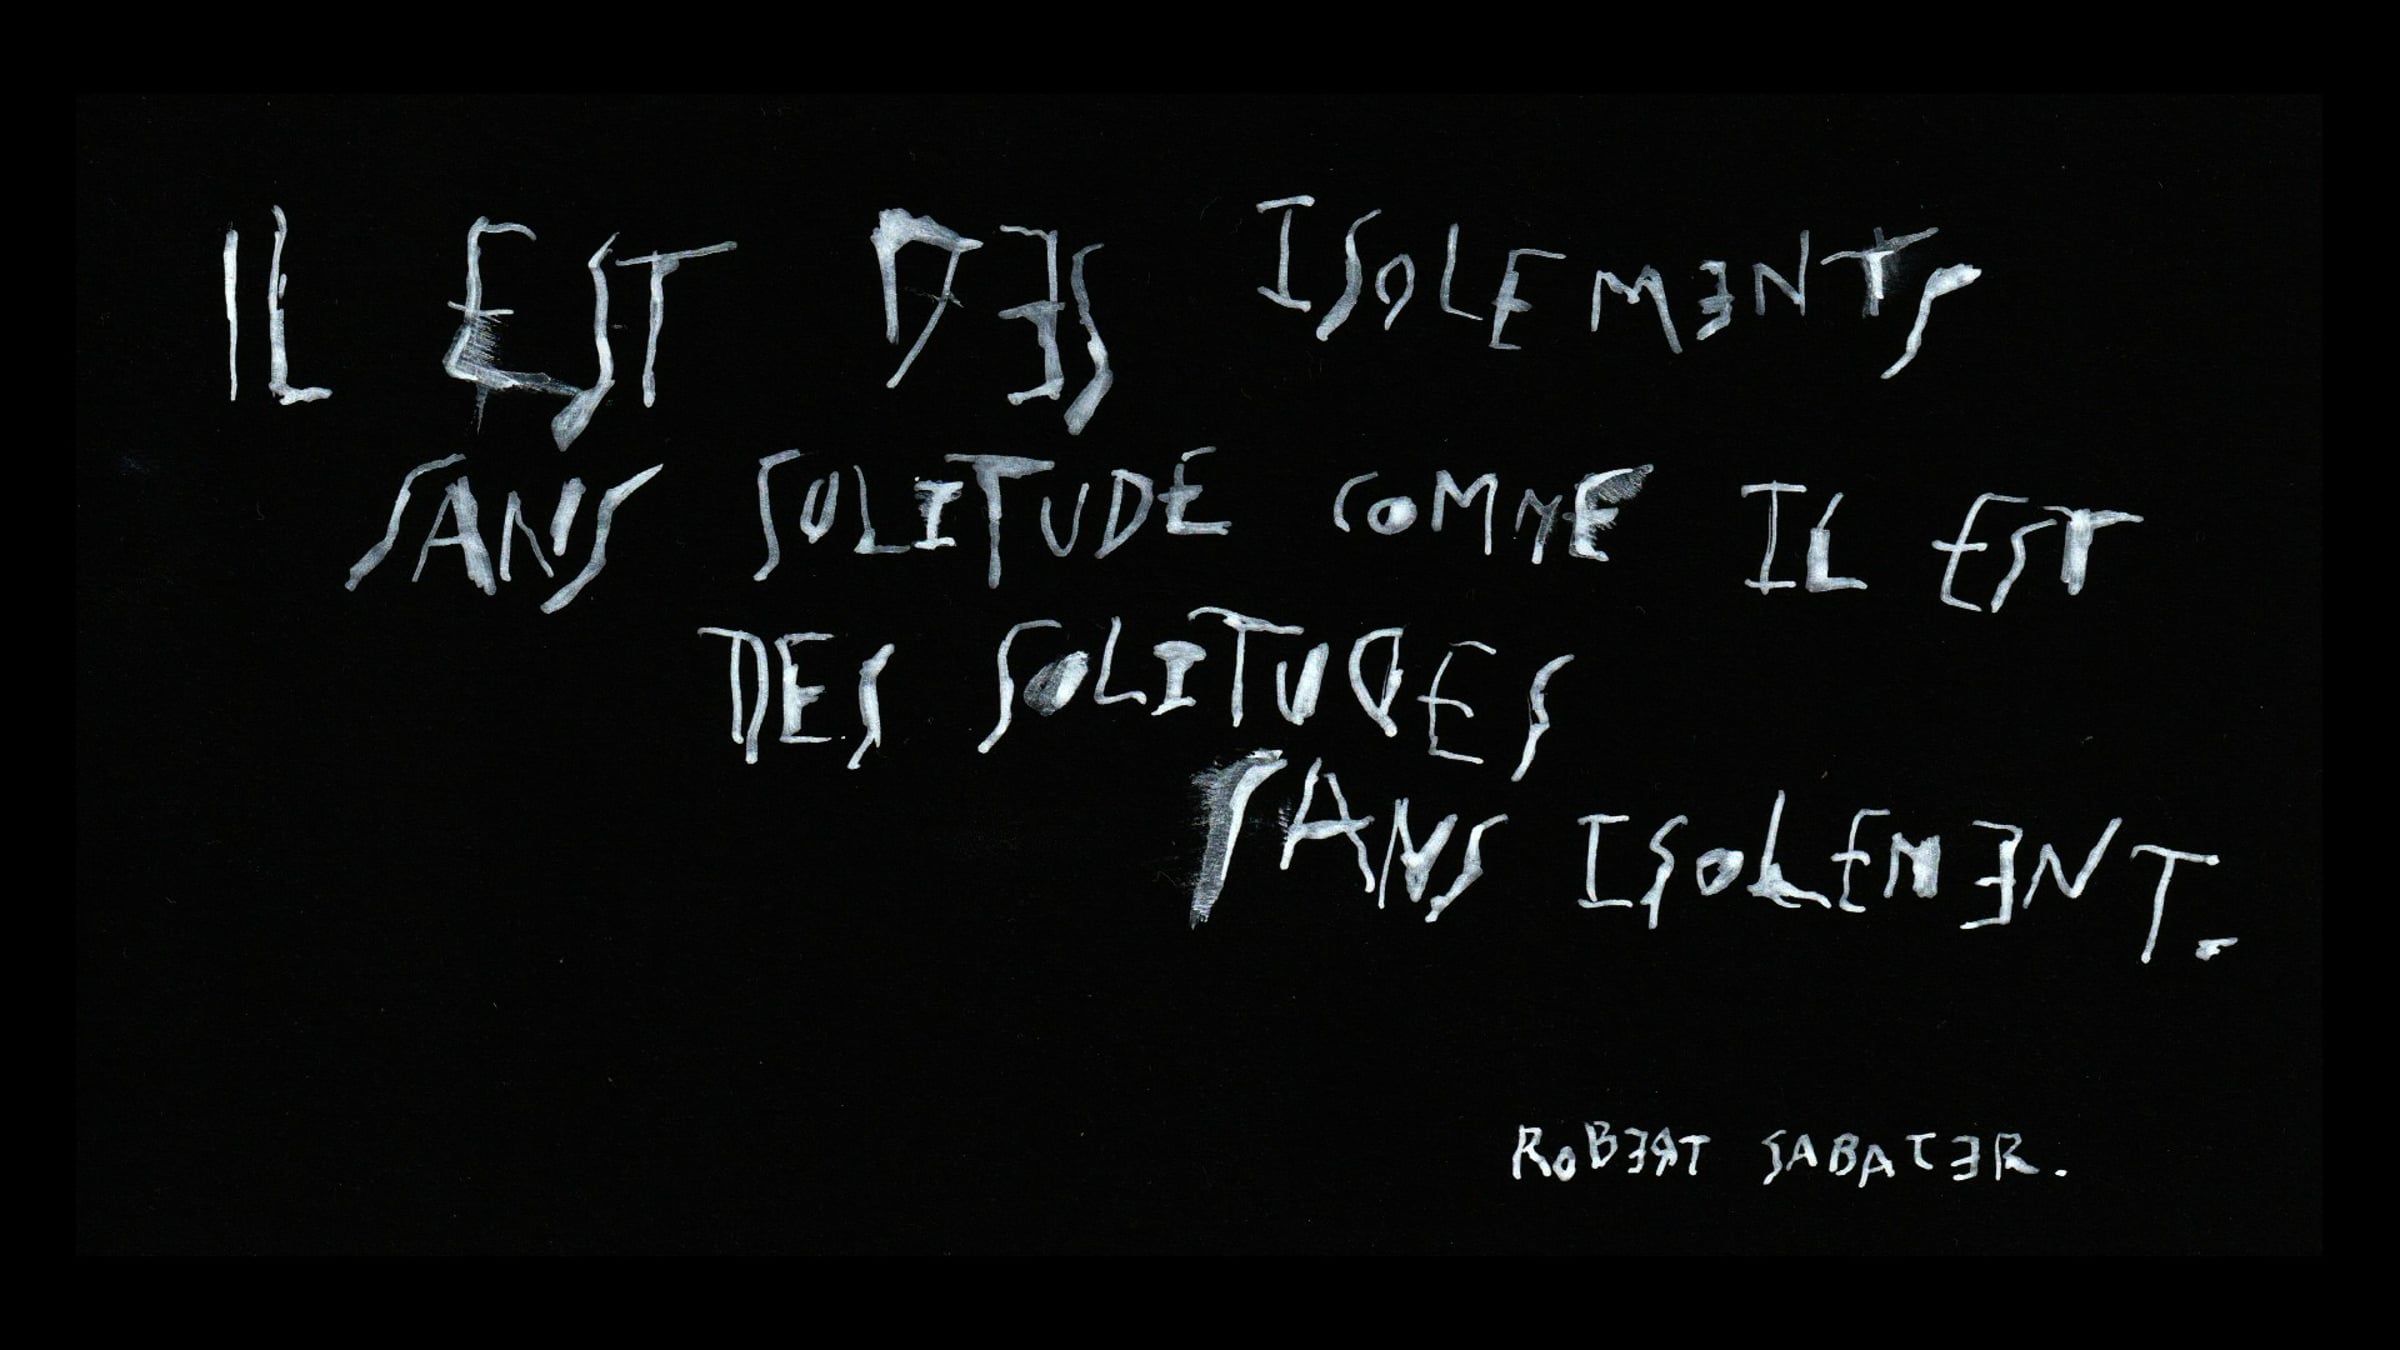 IL EST DES ISOLEMENTS
SANS SOLITUDE COMME IL EST
DES SOLITUDES
SANS ISOLEMENT.
ROBERT SABATER.